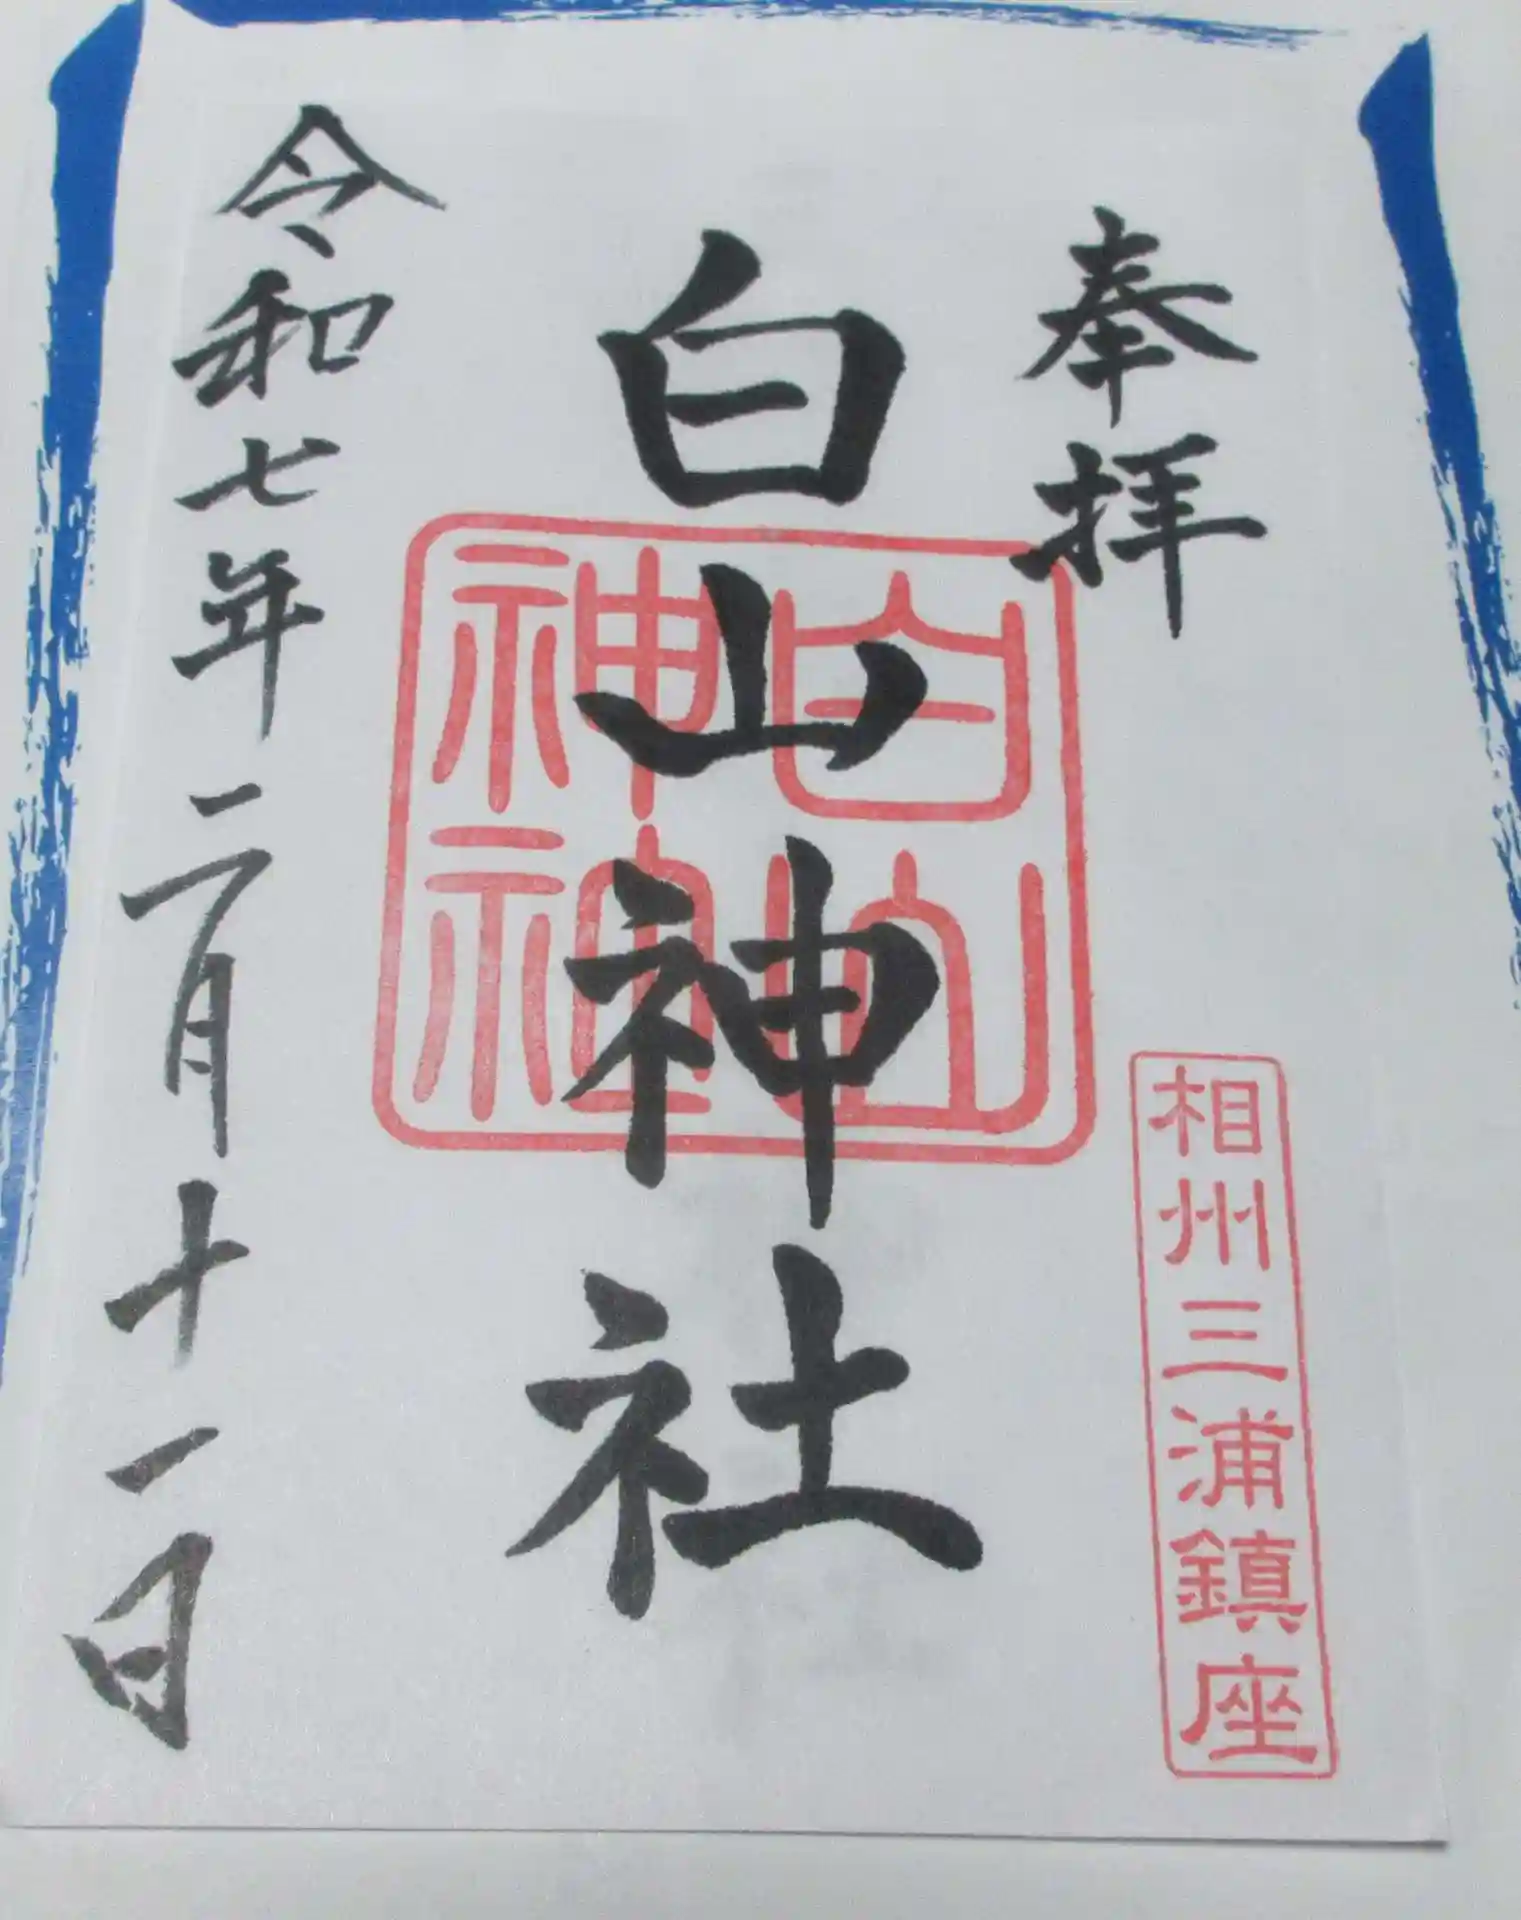 奉拝
相州三浦鎮座
白山神社
白山
神
令和七年二月十一日